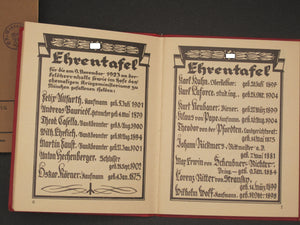 Ehrentafel
für die am 9. November 1923 vor der
Feldherrnhalle sowie im Hofe des
ehemaligen Kriegsministeriums zu
München gefallenen
Felix Allfarth, Kaufmann geb. 5. Juli 1901
Andreas Bauriedl, geb. 4. Mai 1879
Theodor Casella, geb. 8. Aug. 1900
Wilh. Ehrlich, geb. 1894
Martin Faust, geb. 27. 1901
Anton Hechenberger, Schlosser
geb. 1902
Oskar Körner, Kaufmann, geb. 4. Jan. 1875
Ehrentafel
Karl Kuhn, Oberkellner,
geb. 26. Juli 1897
Karl Laforce, geb. 1904
Kurt Neubauer, Diener, geb. 27. März 1899
Klaus von Pape, Kaufmann, geb. 16. Aug. 1904
Theodor von der Pfordten,
geb. 14. Mai 1873
Johann Rickmers, Rittmeister a. D.
geb. 7. Mai 1881
Max Erwin von Scheubner-Richter,
geb. 9. Jan. 1884
Lorenz Ritter von Stransky,
geb. 14. März 1899
Wilhelm Wolf, Kaufmann, geb. 19. Okt. 1898